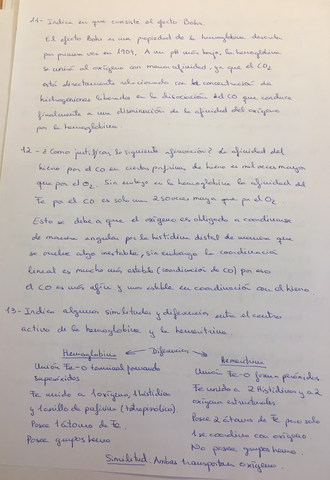 11.- Indica en que consiste el efecto Bohr.
El efecto Bohr es una propiedad de la hemoglobina descrita
por primera vez en 1904. A un pH más bajo, la hemoglobina
se unirá al oxígeno con menor afinidad, ya que el CO2
está directamente relacionado con la concentración de
hidrogeniones liberada en la disociación del CO que conduce
finalmente a una disminución de la afinidad del oxígeno
por la hemoglobina.
12.- ¿Como justificas la siguiente afirmación? La afinidad del
hierro por el CO en ciertas porfirinas de hierro es mil veces mayor
que por el O2. Sin embargo en la hemoglobina la afinidad del
Fe por el CO es solo unas 250 veces mayor que por el O2
Esto se debe a que el oxígeno es obligado a coordinarse
de manera angular por la histidina distal de manera que
se vuelve algo inestable, sin embargo la coordinación
lineal es mucho más estable (coordinación de CO) por eso
el CO es más afín y más estable en coordinación con el hierro.
13.- Indica algunas similitudes y diferencias entre el centro
activo de la hemoglobina y la hemeritrina.
Hemoglobina Diferencias Hemeritrina
Unión Fe-O terminal formando
superóxidos
Fe unido a 1 oxígeno, 1 histidina
y 1 anillo de porfirina (tetrapirrólico)
Posee 1 átomo de Fe
Posee grupo hemo
Unión Fe-O forma peróxidos
Fe unido a 2 Histidinas y a 2
oxígenos estructurales
Posee 2 átomos de Fe pero solo
1 se coordina con oxígeno.
No posee grupo hemo.
Similitud: Ambas transportan oxígeno.